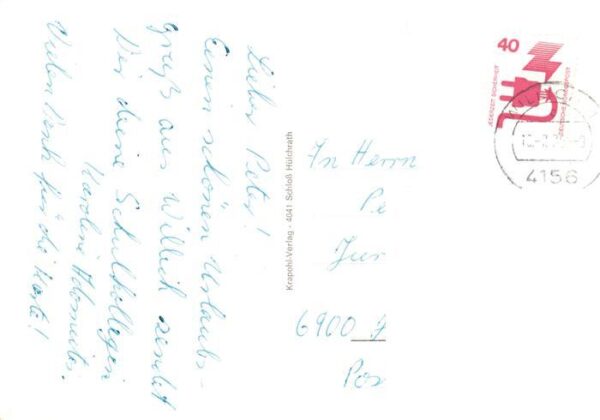 Lieber Peter!
Einen schönen Urlaubs-
gruß aus Willich sendet
Dir deine Schulkollegin
Karoline
Vielen Dank für die Karte!
Krapohl-Verlag · 4041 Schloß Hülchrath
An Herrn
Pe
Jur
6900
Pos
40
JEDERZEIT SICHERHEIT
DEUTSCHE BUNDESPOST
4156